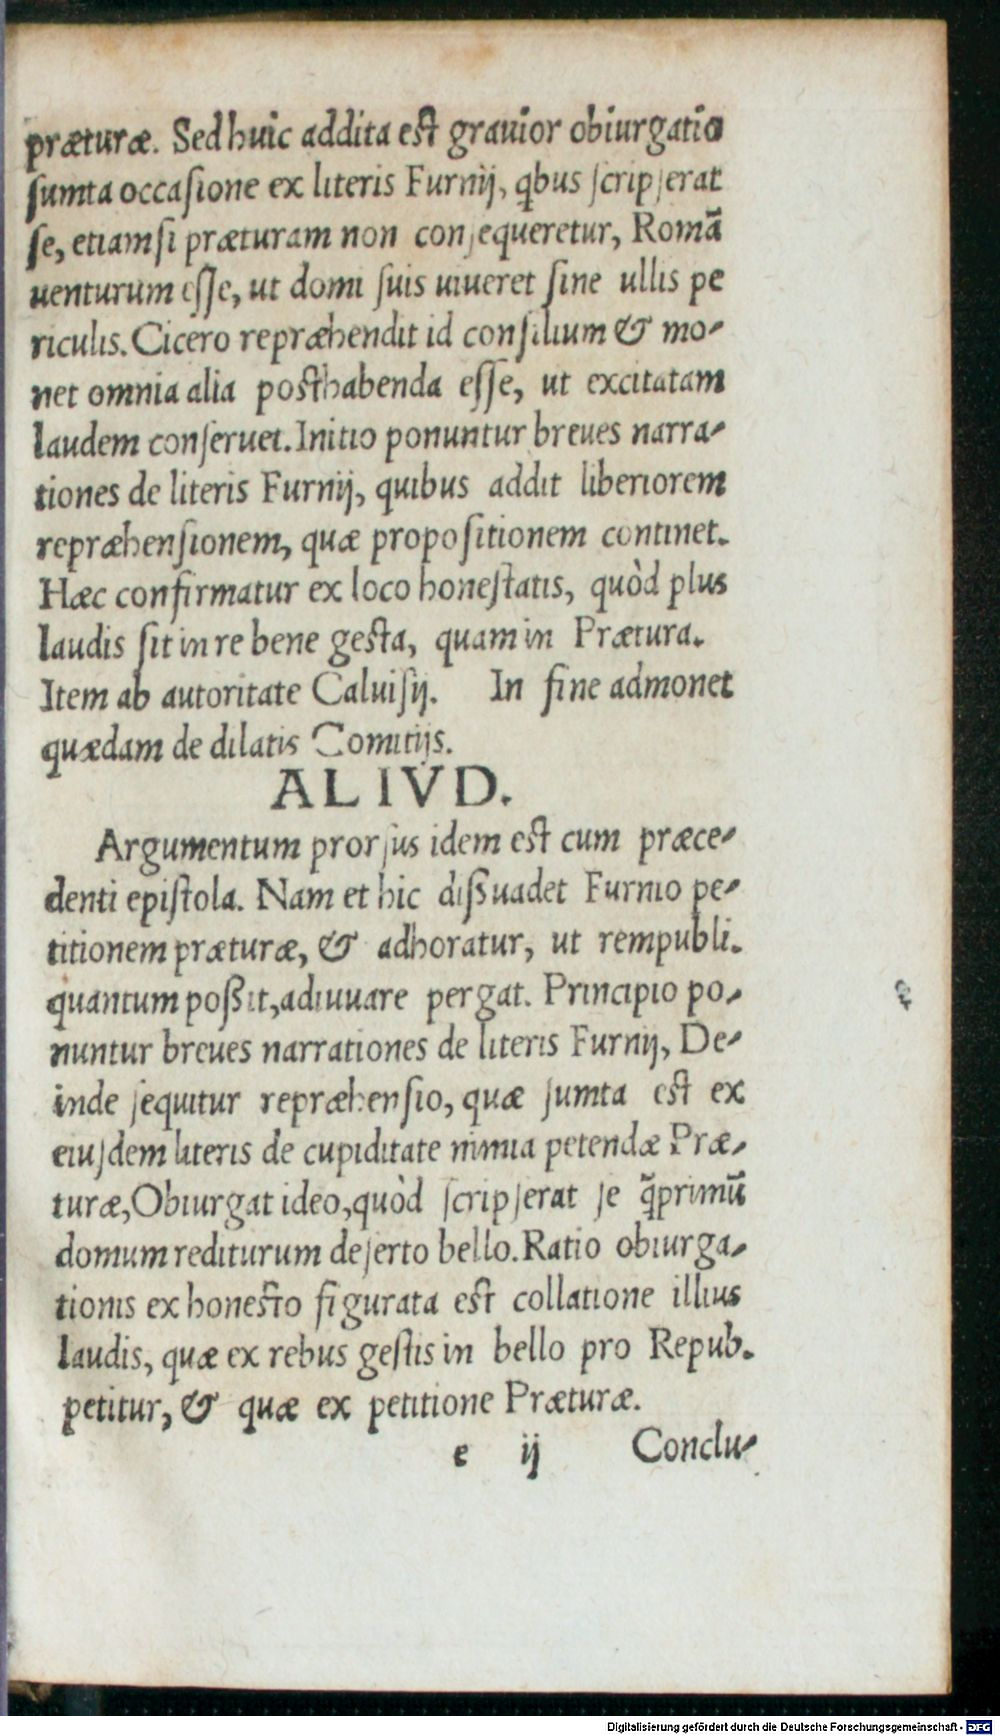 præturæ. Sed huic addita est grauior obiurgatio
ſumta occaſione ex literis Furnij, qbus ſcripſerat
ſe, etiamſi præturam non conſequeretur, Romā
uenturum eſſe, ut domi ſuis uiueret ſine ullis pe
riculis. Cicero repræhendit id conſilium & mo-
net omnia alia posthabenda eſſe, ut excitatam
laudem conſeruet. Initio ponuntur breues narra-
tiones de literis Furnij, quibus addit liberiorem
repræhenſionem, quæ propoſitionem continet.
Hæc confirmatur ex loco honeſtatis, quòd plus
laudis ſit in re bene geſta, quam in Prætura.
Item ab autoritate Caluiſij. In fine admonet
quædam de dilatis Comitijs.
ALIVD.
Argumentum prorſus idem est cum præce-
denti epiſtola. Nam et hic dißuadet Furnio pe-
titionem præturæ, & adhoratur, ut rempubli.
quantum poßit, adiuuare pergat. Principio po-
nuntur breues narrationes de literis Furnij, De-
inde ſequitur repræhenſio, quæ ſumta est ex
eiuſdem literis de cupiditate nimia petendæ Præ-
turæ, Obiurgat ideo, quòd ſcripſerat ſe q̄primū
domum rediturum deſerto bello. Ratio obiurga-
tionis ex honesto figurata est collatione illius
laudis, quæ ex rebus geſtis in bello pro Repub.
petitur, & quæ ex petitione Præturæ.
e ij Conclu-
Digitalisierung gefördert durch die Deutsche Forschungsgemeinschaft - DFG